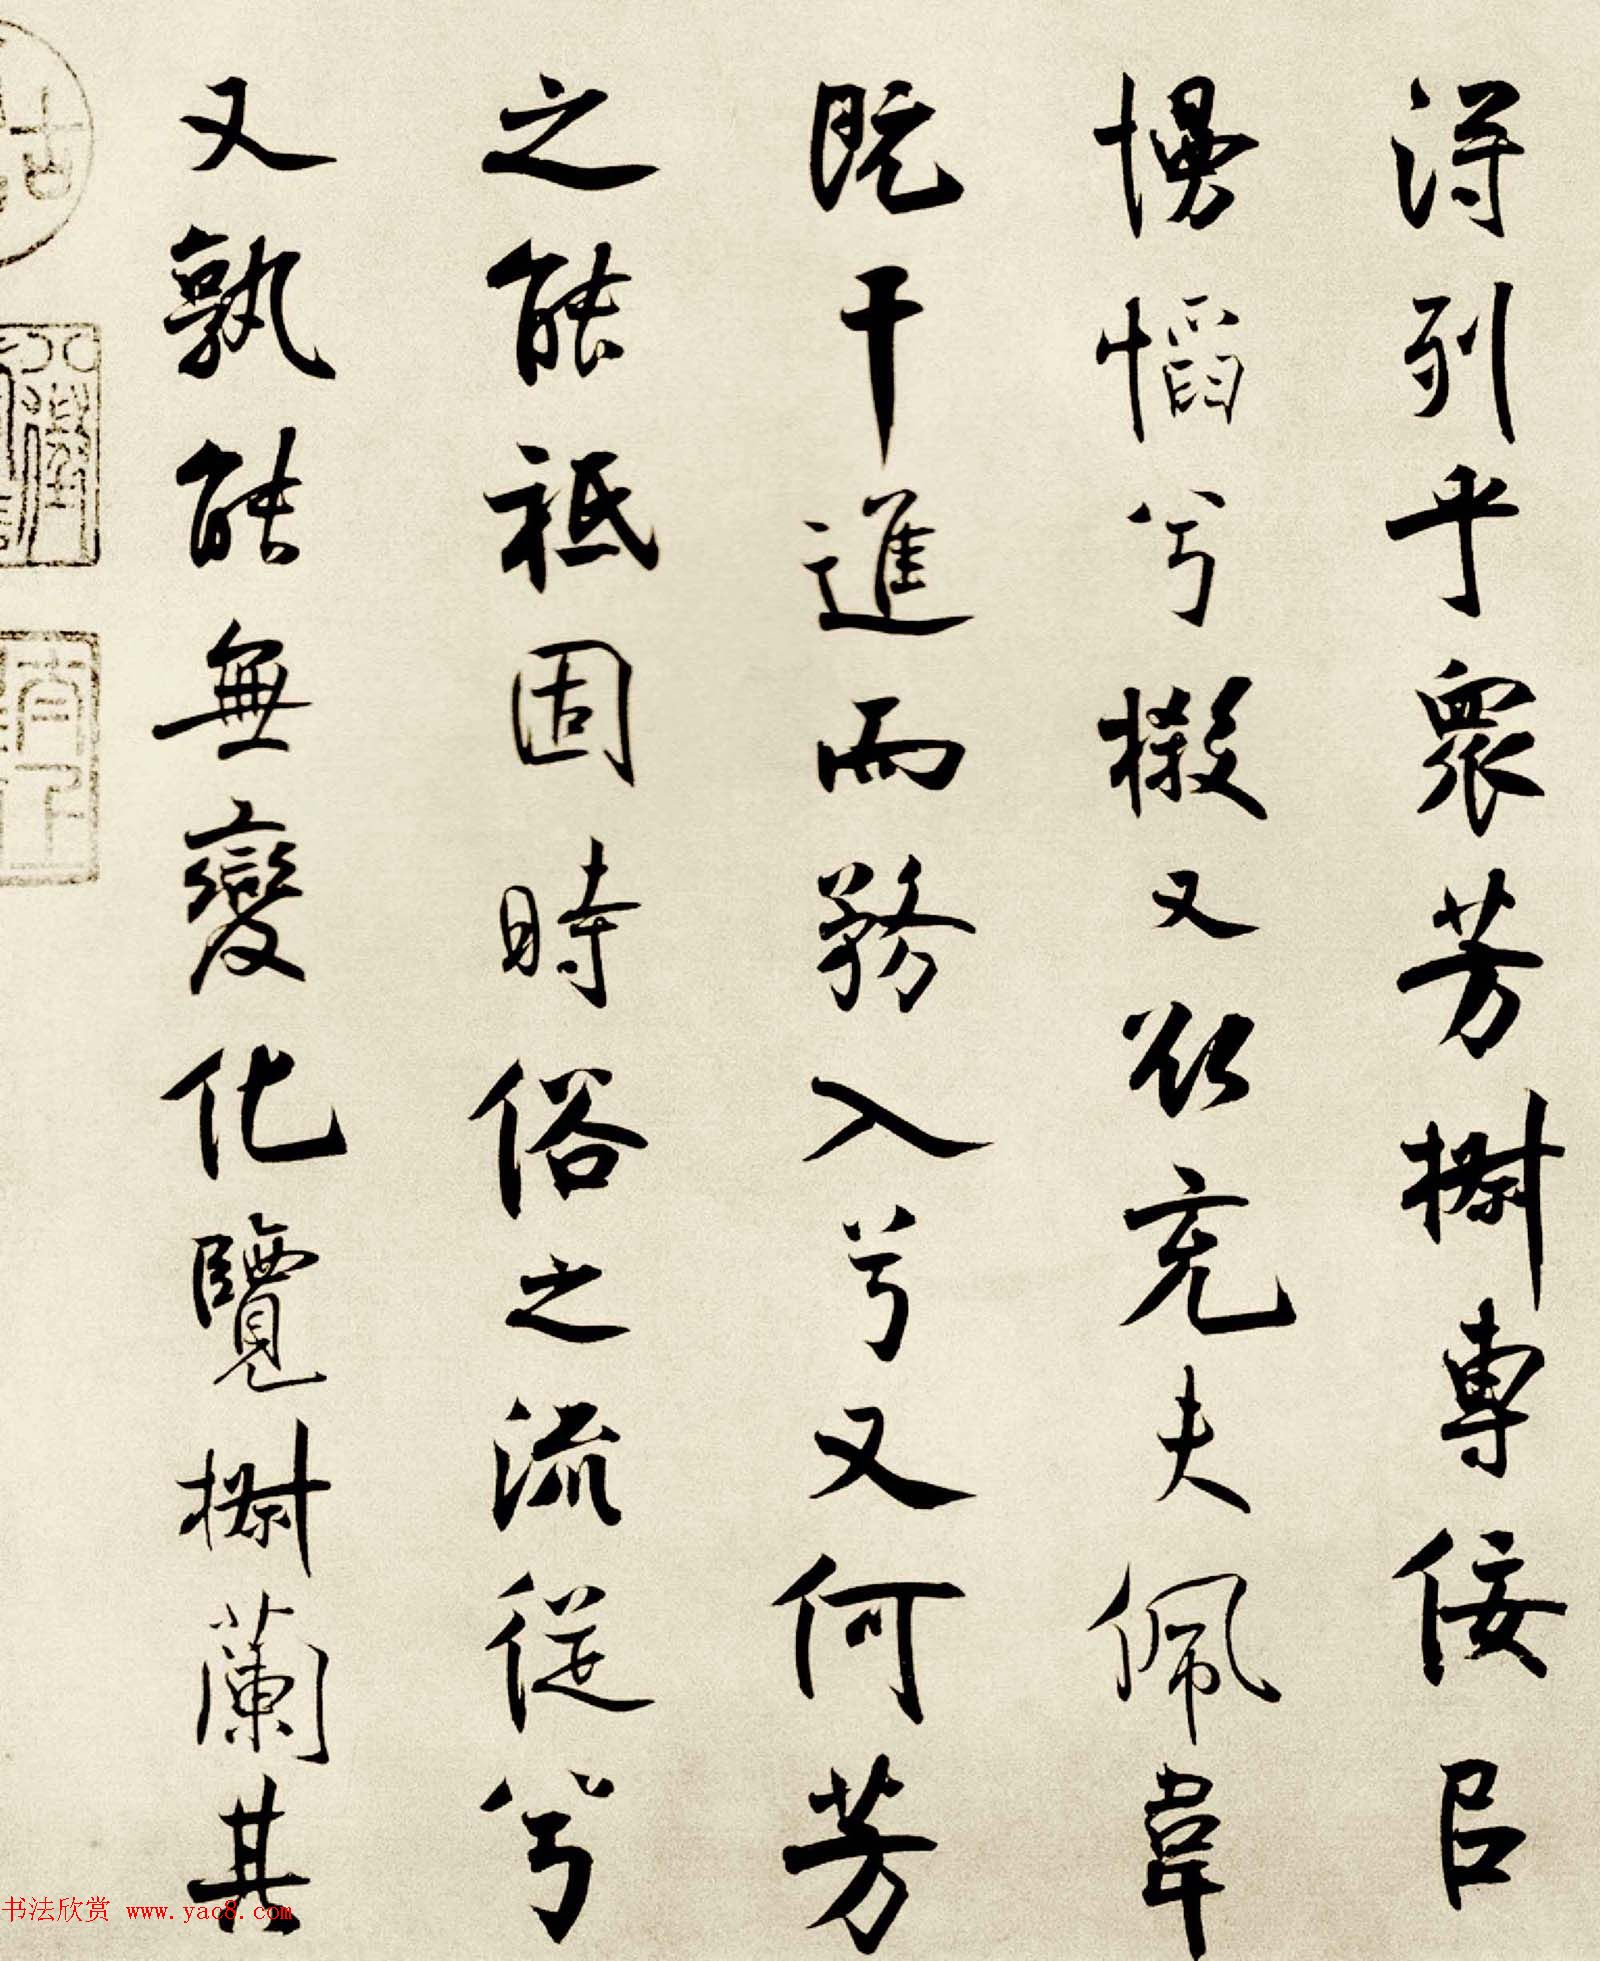 得列乎眾芳樧專佞以
慢慆兮樧又欲充夫佩幃
既干進而務入兮又何芳
之能祗固時俗之流從兮
又孰能無變化覽樧蘭其
书法欣赏 www.yac8.com